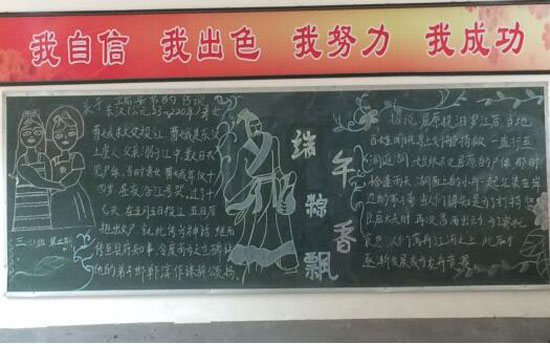 我自信 我出色 我努力 我成功
关于端午节的传说
东汉(公元23—220年)曹娥
曹娥救父投江 曹娥是东汉
上虞人 父亲溺于江中 数日不
见尸体 当时孝女曹娥年仅十
四岁 昼夜沿江号哭 过了十
七天 在五月五日投江 五日后
抱出父尸 就此传为神话 继而
传至县府知事 令度尚为之立碑 让
他的弟子邯郸淳作诔辞颂扬
三
班 第二期
端午
粽香
飘
据说 屈原投汨罗江后 当地
百姓闻讯马上划船捞救 一直行至
洞庭湖 始终不见屈原的尸体 那时
恰逢雨天 湖面上的小舟一起汇集在岸
边的亭子旁 当人们得知是为了打捞
臣屈大夫时 再次冒雨出动
人们荡舟江河之上 此后才
逐渐发展成为龙舟竞赛